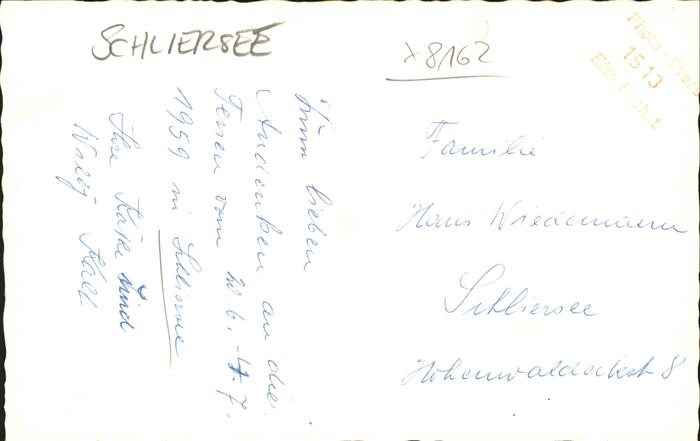 SCHLIERSEE
x 8162
Photo-
1513
Zum lieben
Andenken an die
Ferien vom 20.6.-4.7.
1959 in Schliersee
Ihre Käthe und
Willy Kall
Familie
Hans Wiedemann
Schliersee
Hohenwaldeckstr 8